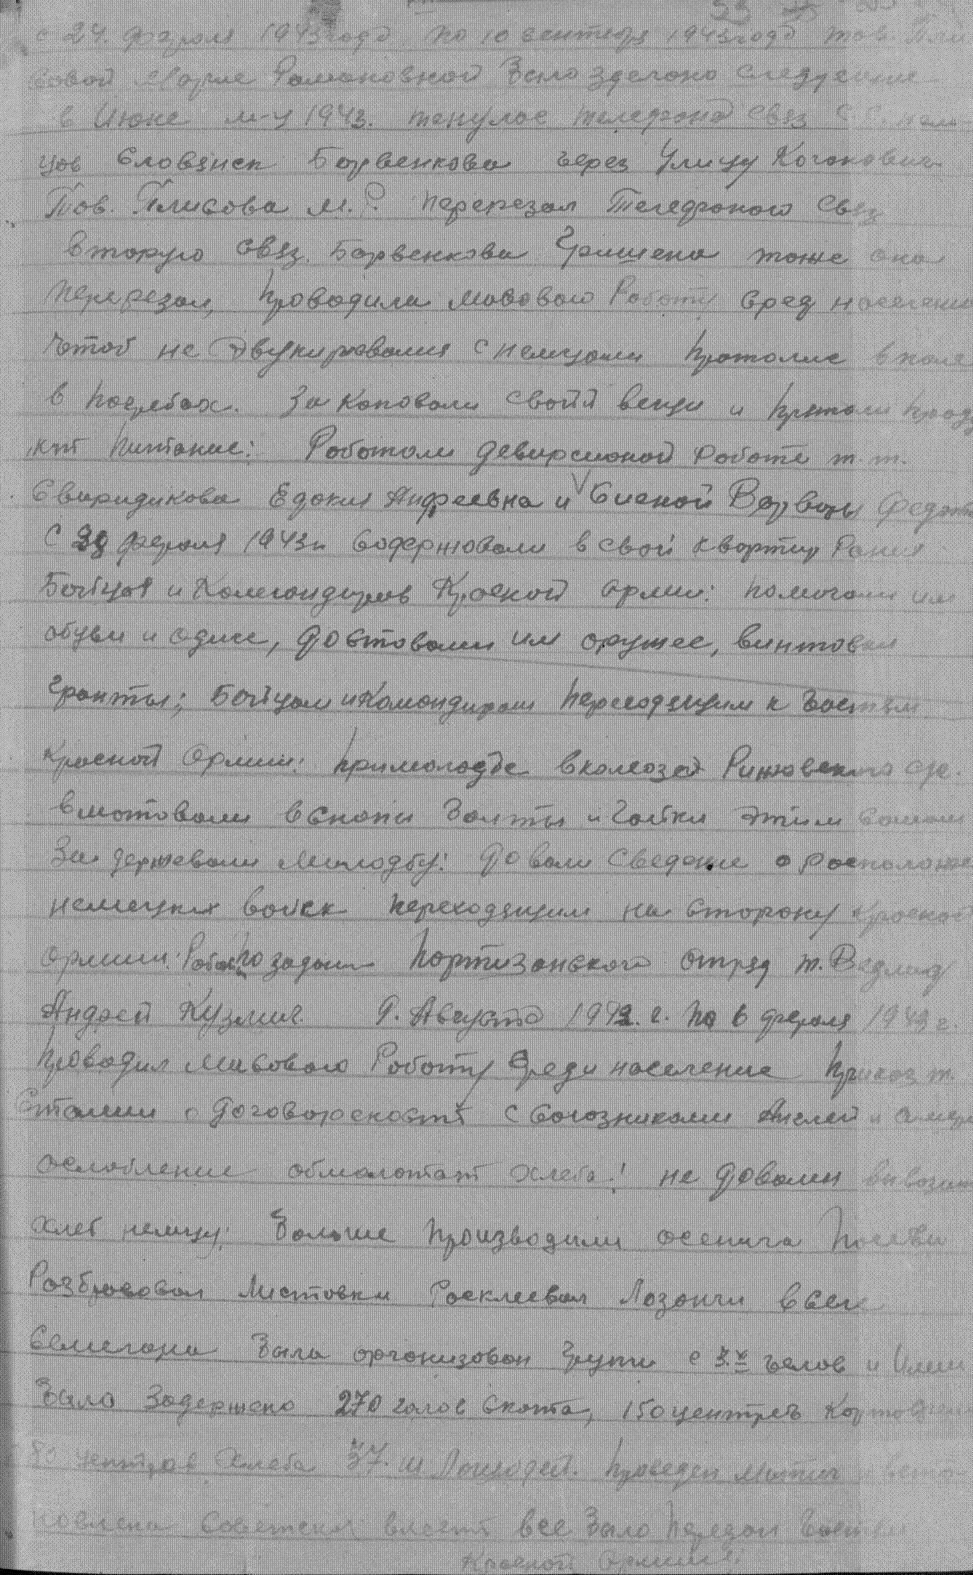 с 24. февроля 1943 года по 10 сентебря 1943 года тов. Пли
совой Марие Романовной Было зделоно следующие
в Июне м-ц 1943. тенулос телефоно связ
цов Словянск Борвенкова через Улицу Когоновича
Тов. Плисова М.Р. перерезал Телефоною Связ
вторую связ. Борвенкова Гришено тоже она
перерезал, проводила масовою Роботу сред населения
чтоб не эвукировалися с немцами прятолис в поле
в погребах. За коповоли свойи вещи и прятоли проду
кт питание: Роботоли деверсионой роботе т.т.
Свиридикова Едокия Андреевна и Сисной Ворвары Федо
С 28 февроля 1943 г. Содержовали в своей квортир Раних
Бойцов и Комондиров Красной армии: помогали им
обуви и одежде, достовали им оружее, винтовки
гранты; Бойцам и Комондирам переходящим к Частям
красной Армии: при молодбе в колхозах
вмотовали в снопы Болты и Гайки этим самым
За держевали Молодбу: Доволи сведение о росположен
немецких войск переходящим на сторону Красной
армии: Робота по задани портизонского отряд т.
Андрей Кузмич. С. Августа 1942 г. по 6 февроля 1943 г.
проводил масовою Роботу среди население Приказ т.
Сталин о Договорености с союзниками Англей и Америк
ослобление обмолотат хлеба! не доволи вывозит
хлеб немцу; Больше производили осенига посеви
Розбрасовал Листовки Росклеевал Лозонги в селе
Селигона Была оргонизован Групи с чолов и Ими
Было Задержено 270 голов скота, 150 центреров Кортофеля
50 центров Хлеба 37. ш Лошодей. Проведен митинг
новлена Советской власть все Было передан Частям
Красной Армии: